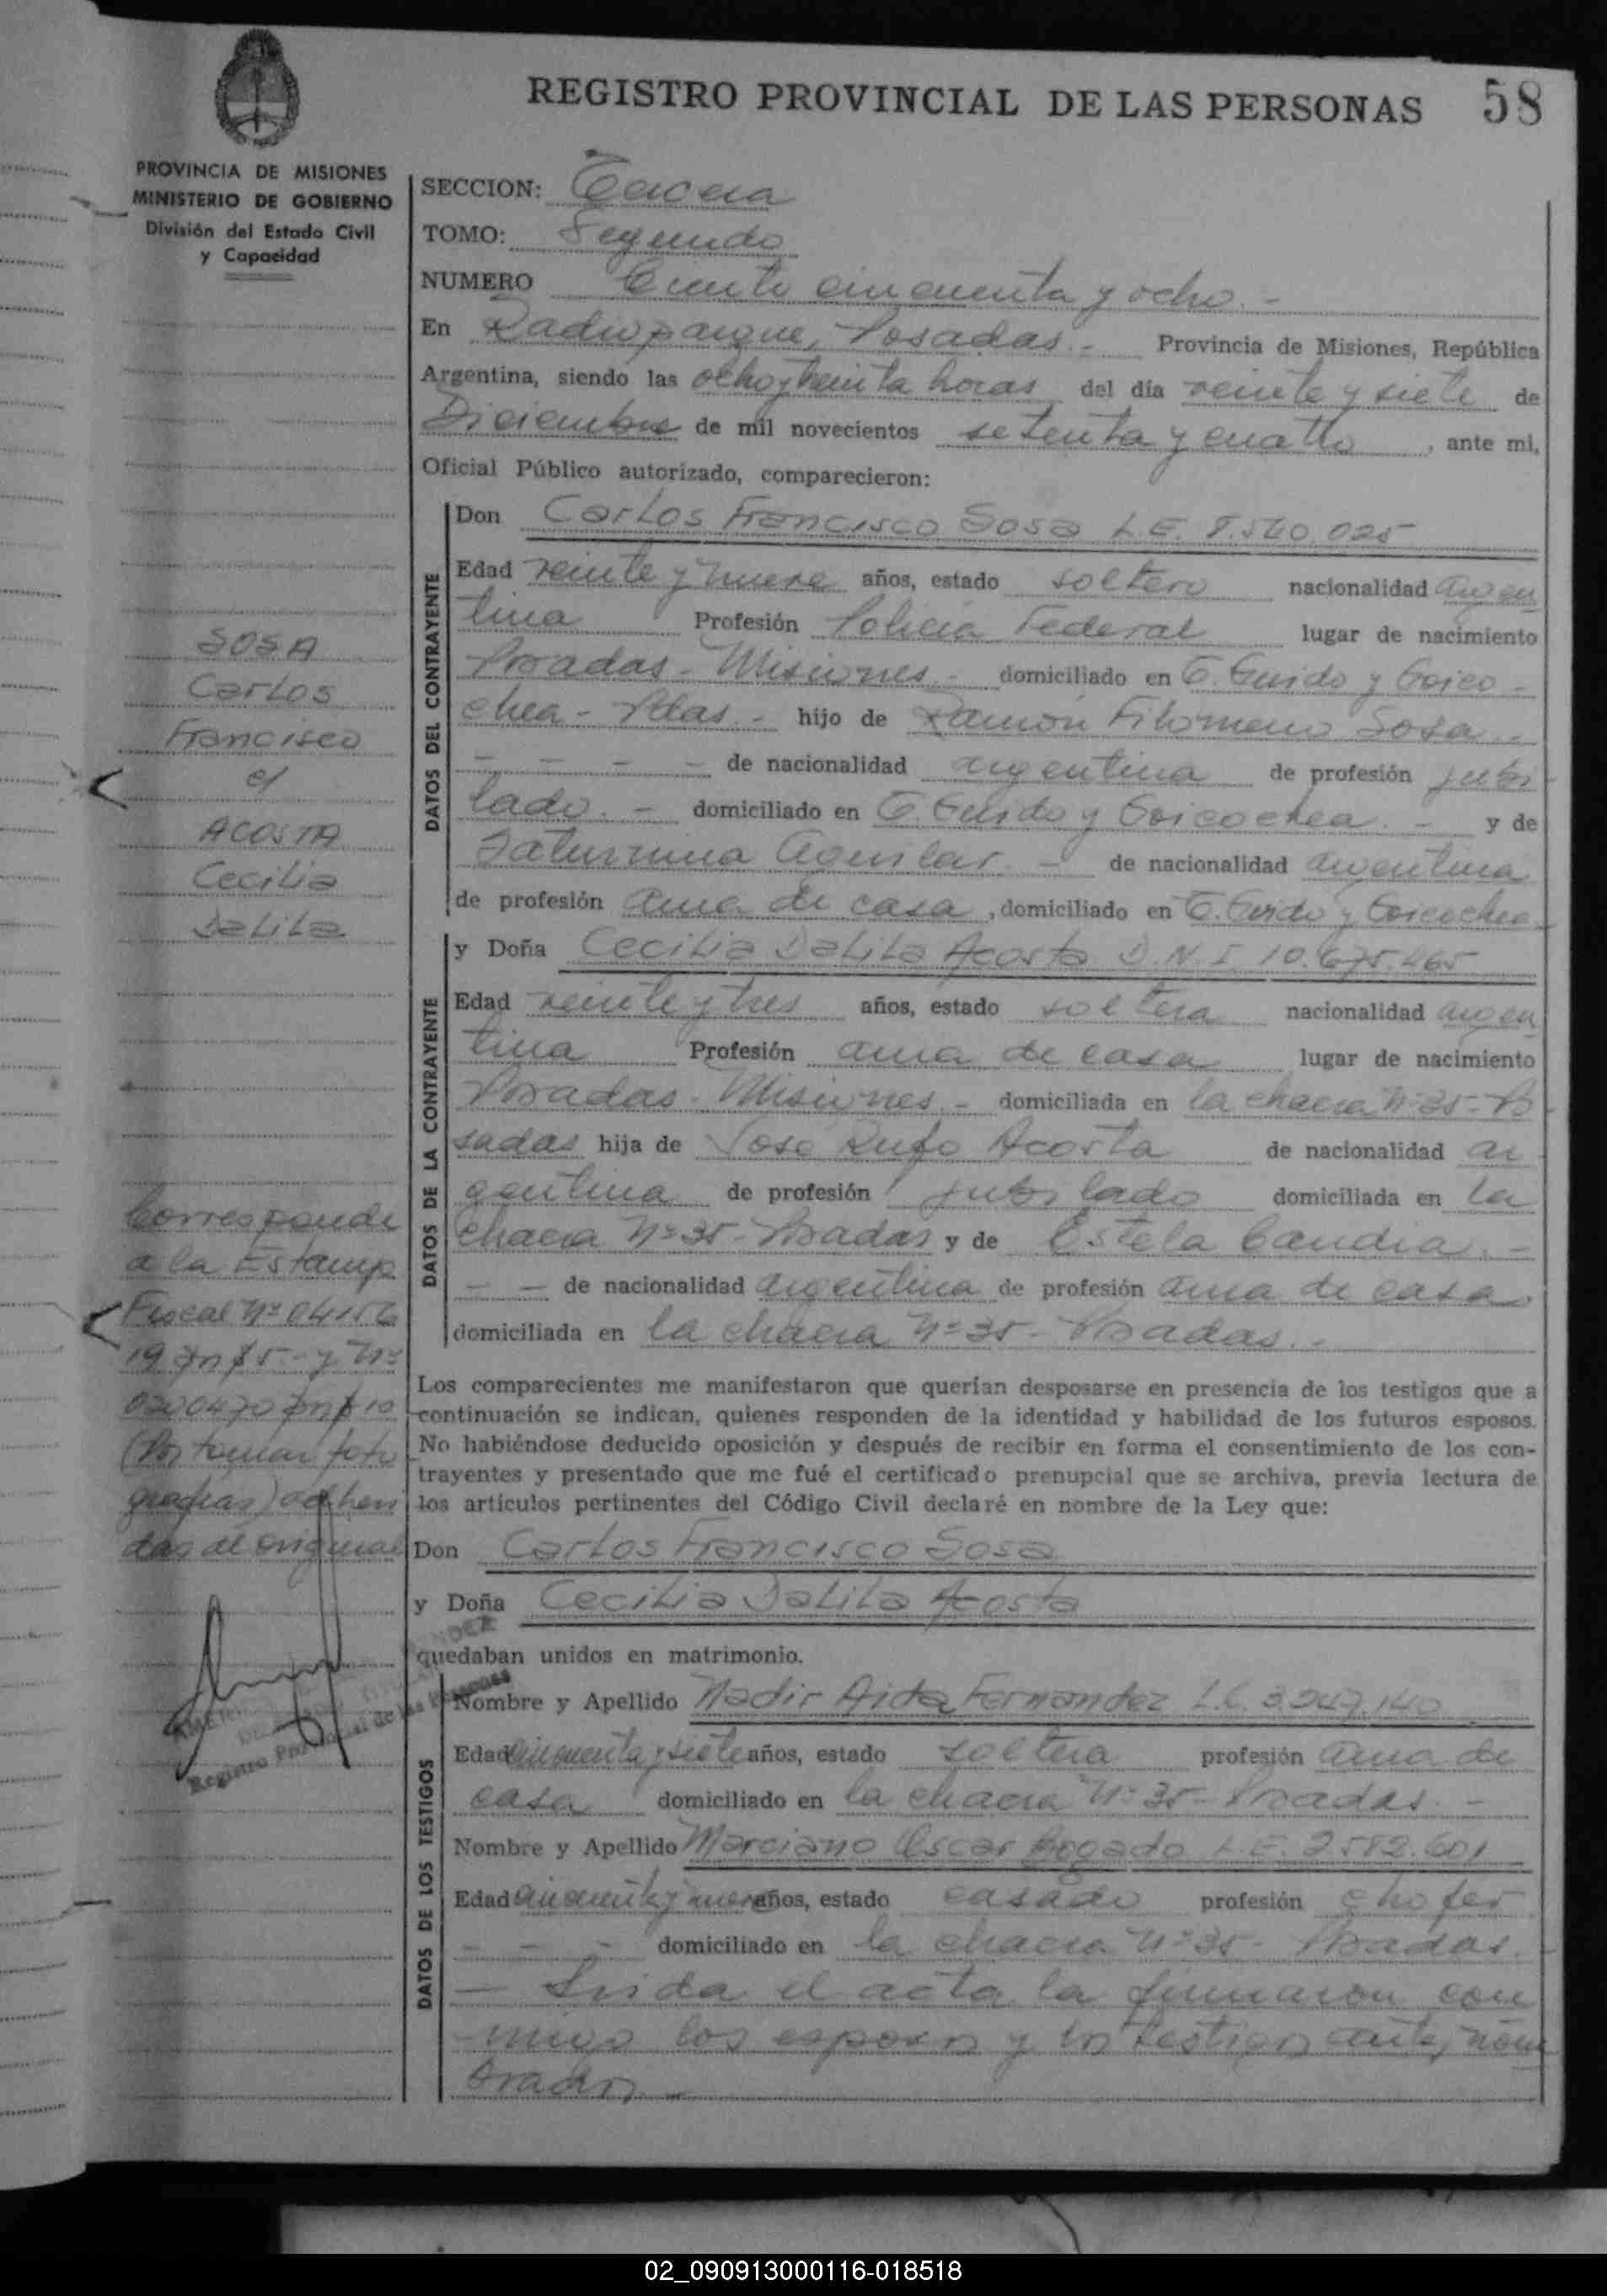 REGISTRO PROVINCIAL DE LAS PERSONAS 58
PROVINCIA DE MISIONES
MINISTERIO DE GOBIERNO
División del Estado Civil
y Capacidad
SECCION: Tercera
TOMO: Segundo
NUMERO Ciento cincuenta y ocho.-
En Radioparque, Posadas.- Provincia de Misiones, República
Argentina, siendo las ocho y treinta horas del día veinte y siete de
Diciembre de mil novecientos setenta y cuatro, ante mi,
Oficial Público autorizado, comparecieron:
DATOS DEL CONTRAYENTE
Don Carlos Francisco Sosa L.E. 8.540.025
Edad veinte y nueve años, estado soltero nacionalidad argen
tina Profesión Policía Federal lugar de nacimiento
Posadas - Misiones - domiciliado en T. Guido y Goico -
chea - Pdas. - hijo de Ramón Filomeno Sosa -
- - - - de nacionalidad argentina de profesión jubi
lado. - domiciliado en T. Guido y Goicochea. - y de
Saturnina Aguilar. - de nacionalidad argentina
de profesión ama de casa, domiciliado en T. Guido y Goicochea
SOSA
Carlos
Francisco
c/
ACOSTA
Cecilia
Dalila
DATOS DE LA CONTRAYENTE
y Doña Cecilia Dalila Acosta D.N.I 10.675.465
Edad veinte y tres años, estado soltera nacionalidad argen
tina Profesión ama de casa lugar de nacimiento
Posadas - Misiones - domiciliada en la chacra Nº 35 - Po
sadas hija de José Rufo Acosta de nacionalidad ar
gentina de profesión jubilado domiciliada en la
chacra Nº 35 - Posadas y de Estela Candia. -
- - de nacionalidad argentina de profesión ama de casa
domiciliada en la chacra Nº 35 - Posadas. -
Corresponde
a la Estamp
Fiscal Nº 04156
19 $ 5.- y Nº
0200470 $ 10
(Por tomar foto
grafías) adheri
das al original
Los comparecientes me manifestaron que querían desposarse en presencia de los testigos que a
continuación se indican, quienes responden de la identidad y habilidad de los futuros esposos.
No habiéndose deducido oposición y después de recibir en forma el consentimiento de los con-
trayentes y presentado que me fué el certificado prenupcial que se archiva, previa lectura de
los artículos pertinentes del Código Civil declaré en nombre de la Ley que:
Don Carlos Francisco Sosa
y Doña Cecilia Dalila Acosta
quedaban unidos en matrimonio.
Registro Provincial de las Personas
DATOS DE LOS TESTIGOS
Nombre y Apellido Nadir Aida Fernandez L.C. 3.247.140
Edad cincuenta y siete años, estado soltera profesión ama de
casa domiciliado en la chacra Nº 35 - Posadas. -
Nombre y Apellido Marciano Oscar Bogado L.E. 2.582.601
Edad cincuenta y nueve años, estado casado profesión chofer
- - - domiciliado en la chacra Nº 35 - Posadas.
- Leída el acta la firmaron con
-migo los esposos y los testigos antes nom
brados. -
02_090913000116-018518